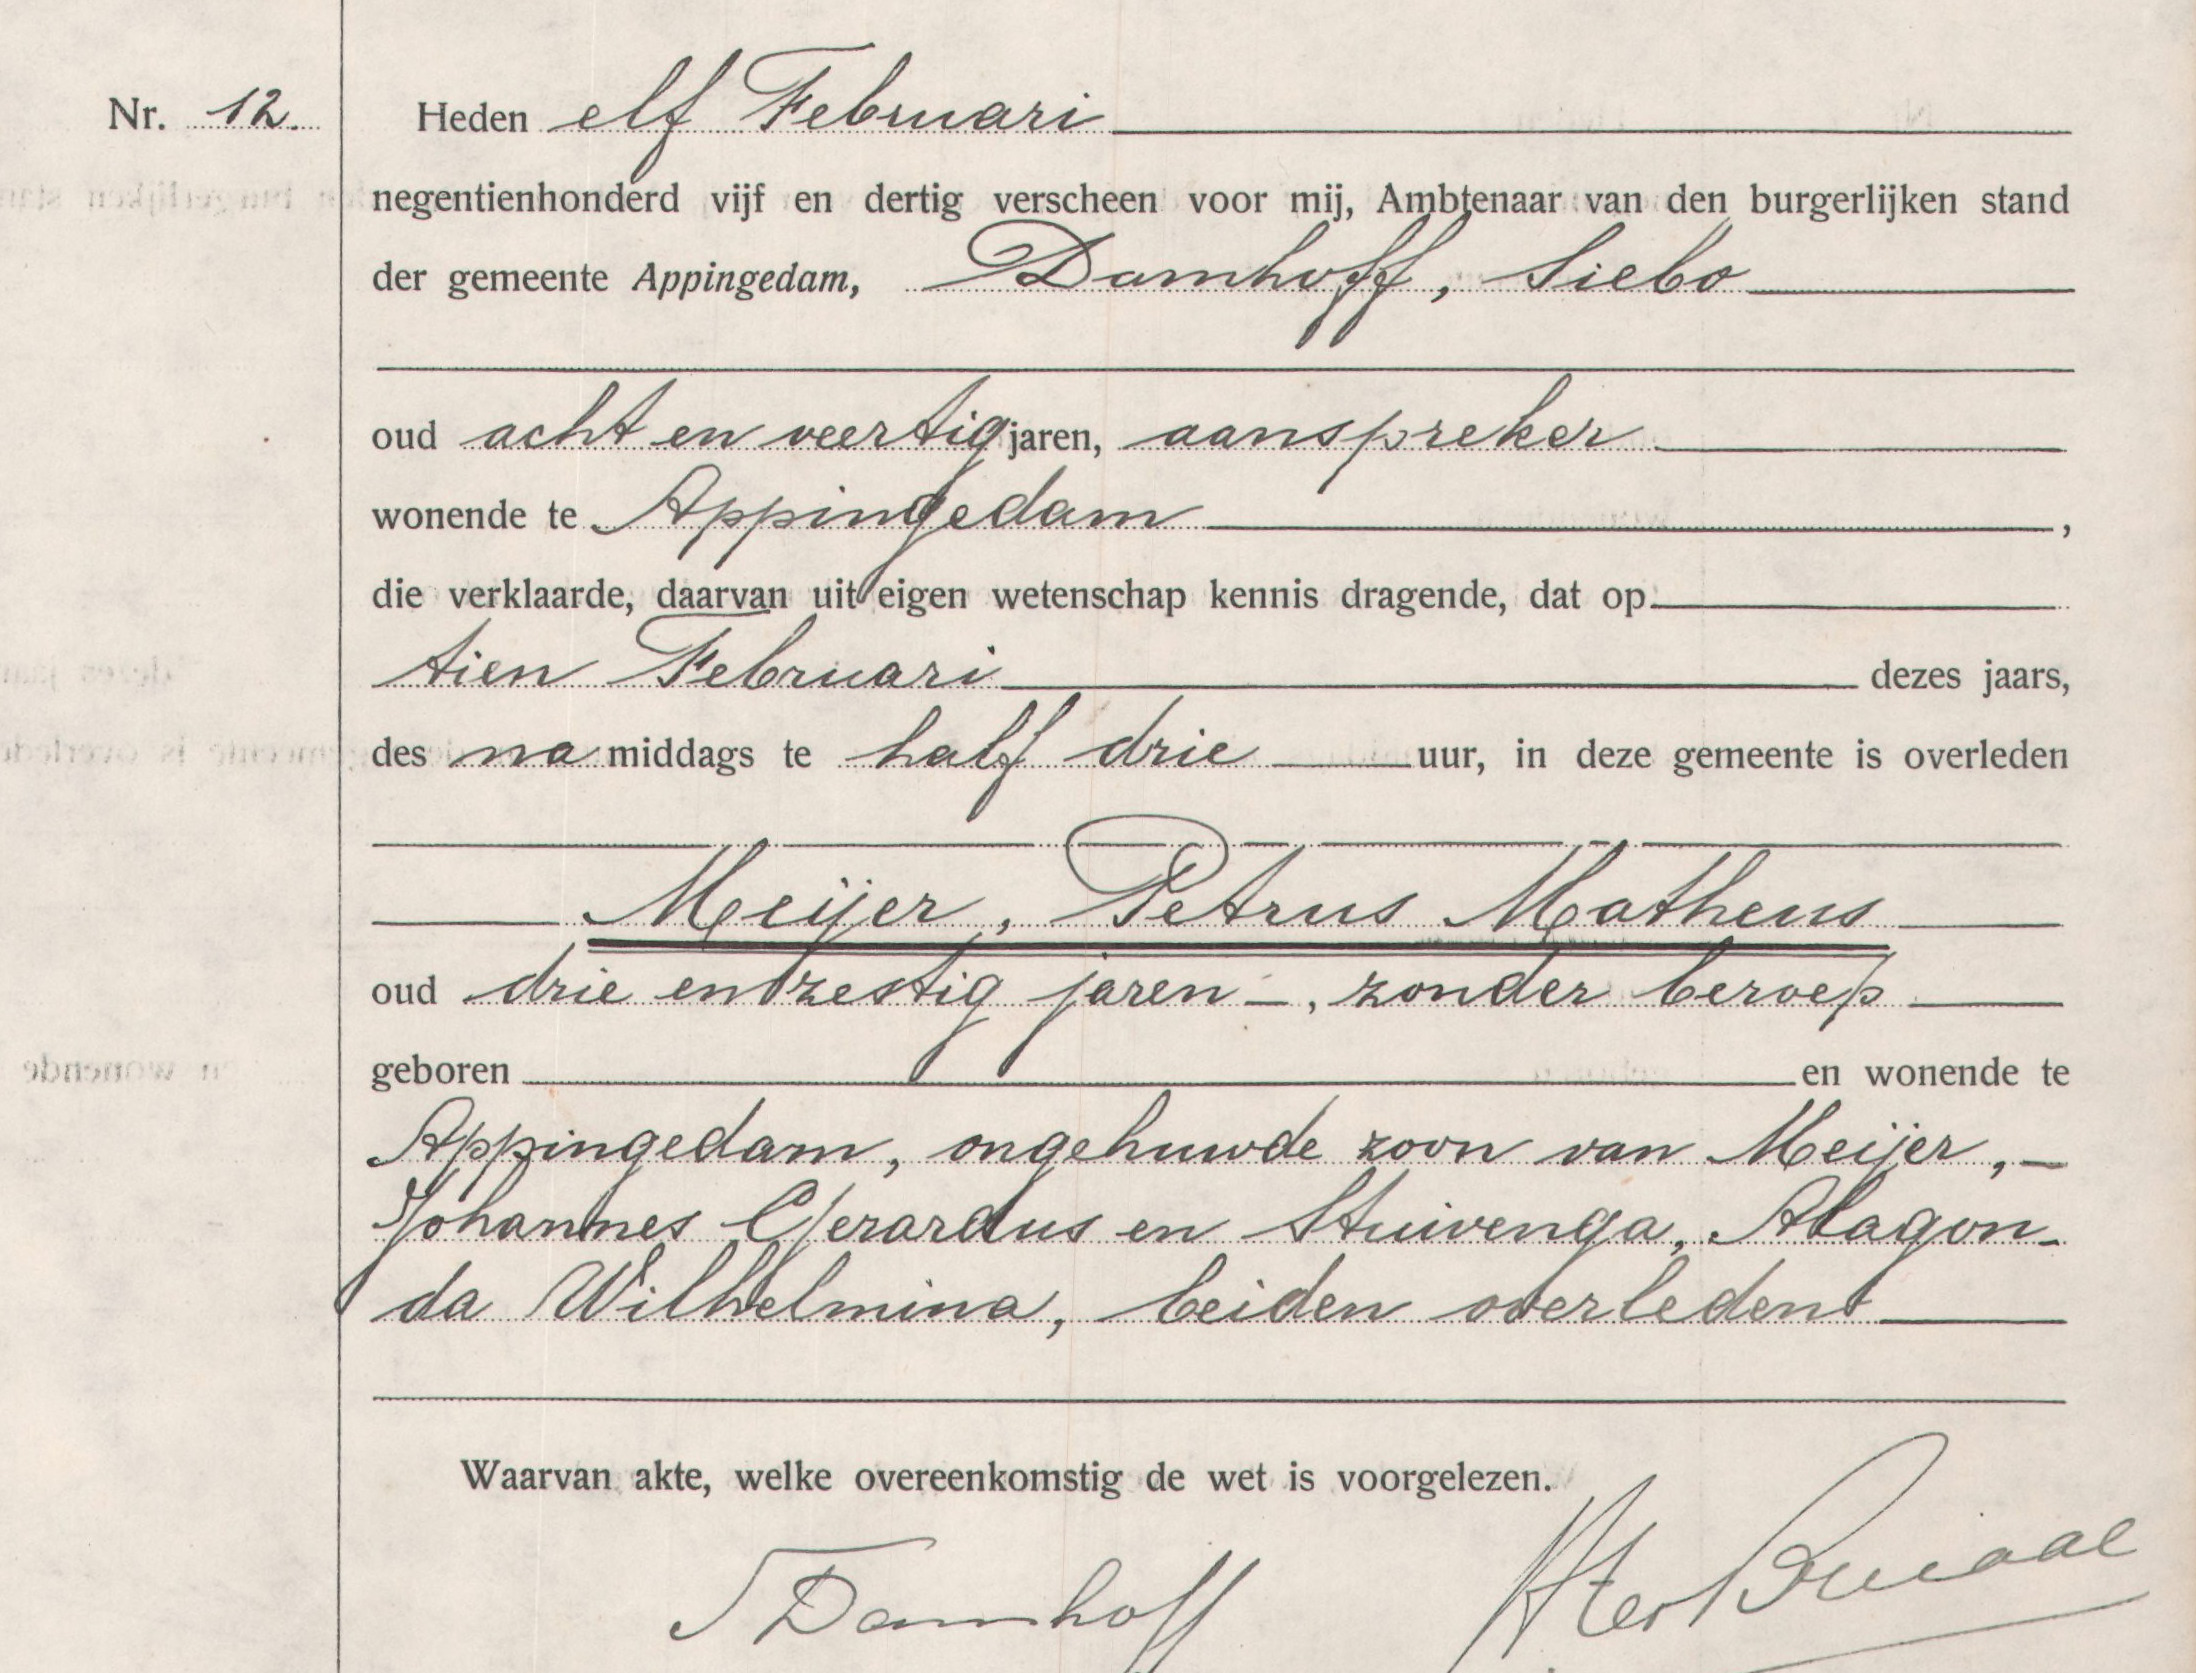 Nr. 12.
Heden elf Februari
negentienhonderd vijf en dertig verscheen voor mij, Ambtenaar van den burgerlijken stand
der gemeente Appingedam, Damhoff, Siebo
oud acht en veertig jaren, aanspreker
wonende te Appingedam ,
die verklaarde, daarvan uit eigen wetenschap kennis dragende, dat op
tien Februari dezes jaars,
des na middags te half drie uur, in deze gemeente is overleden
Meijer, Petrus Matheus
oud drie en zestig jaren —, zonder beroep
geboren en wonende te
Appingedam, ongehuwde zoon van Meijer, —
Johannes Gerardus en Stuivenga, Alagon-
da Wilhelmina, beiden overleden
Waarvan akte, welke overeenkomstig de wet is voorgelezen.
S Damhoff